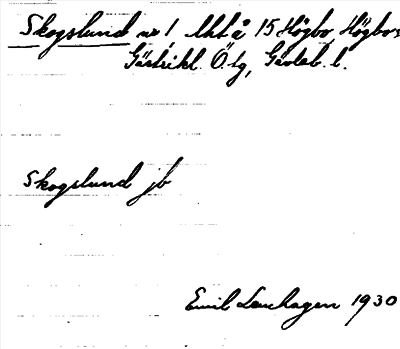 Skogslund nr 1 Uht å 15 Högbo, Högbo s.
Gästrikl. Ö. tg, Gävleb. l.
Skogslund jb
Emil Lenhagen 1930